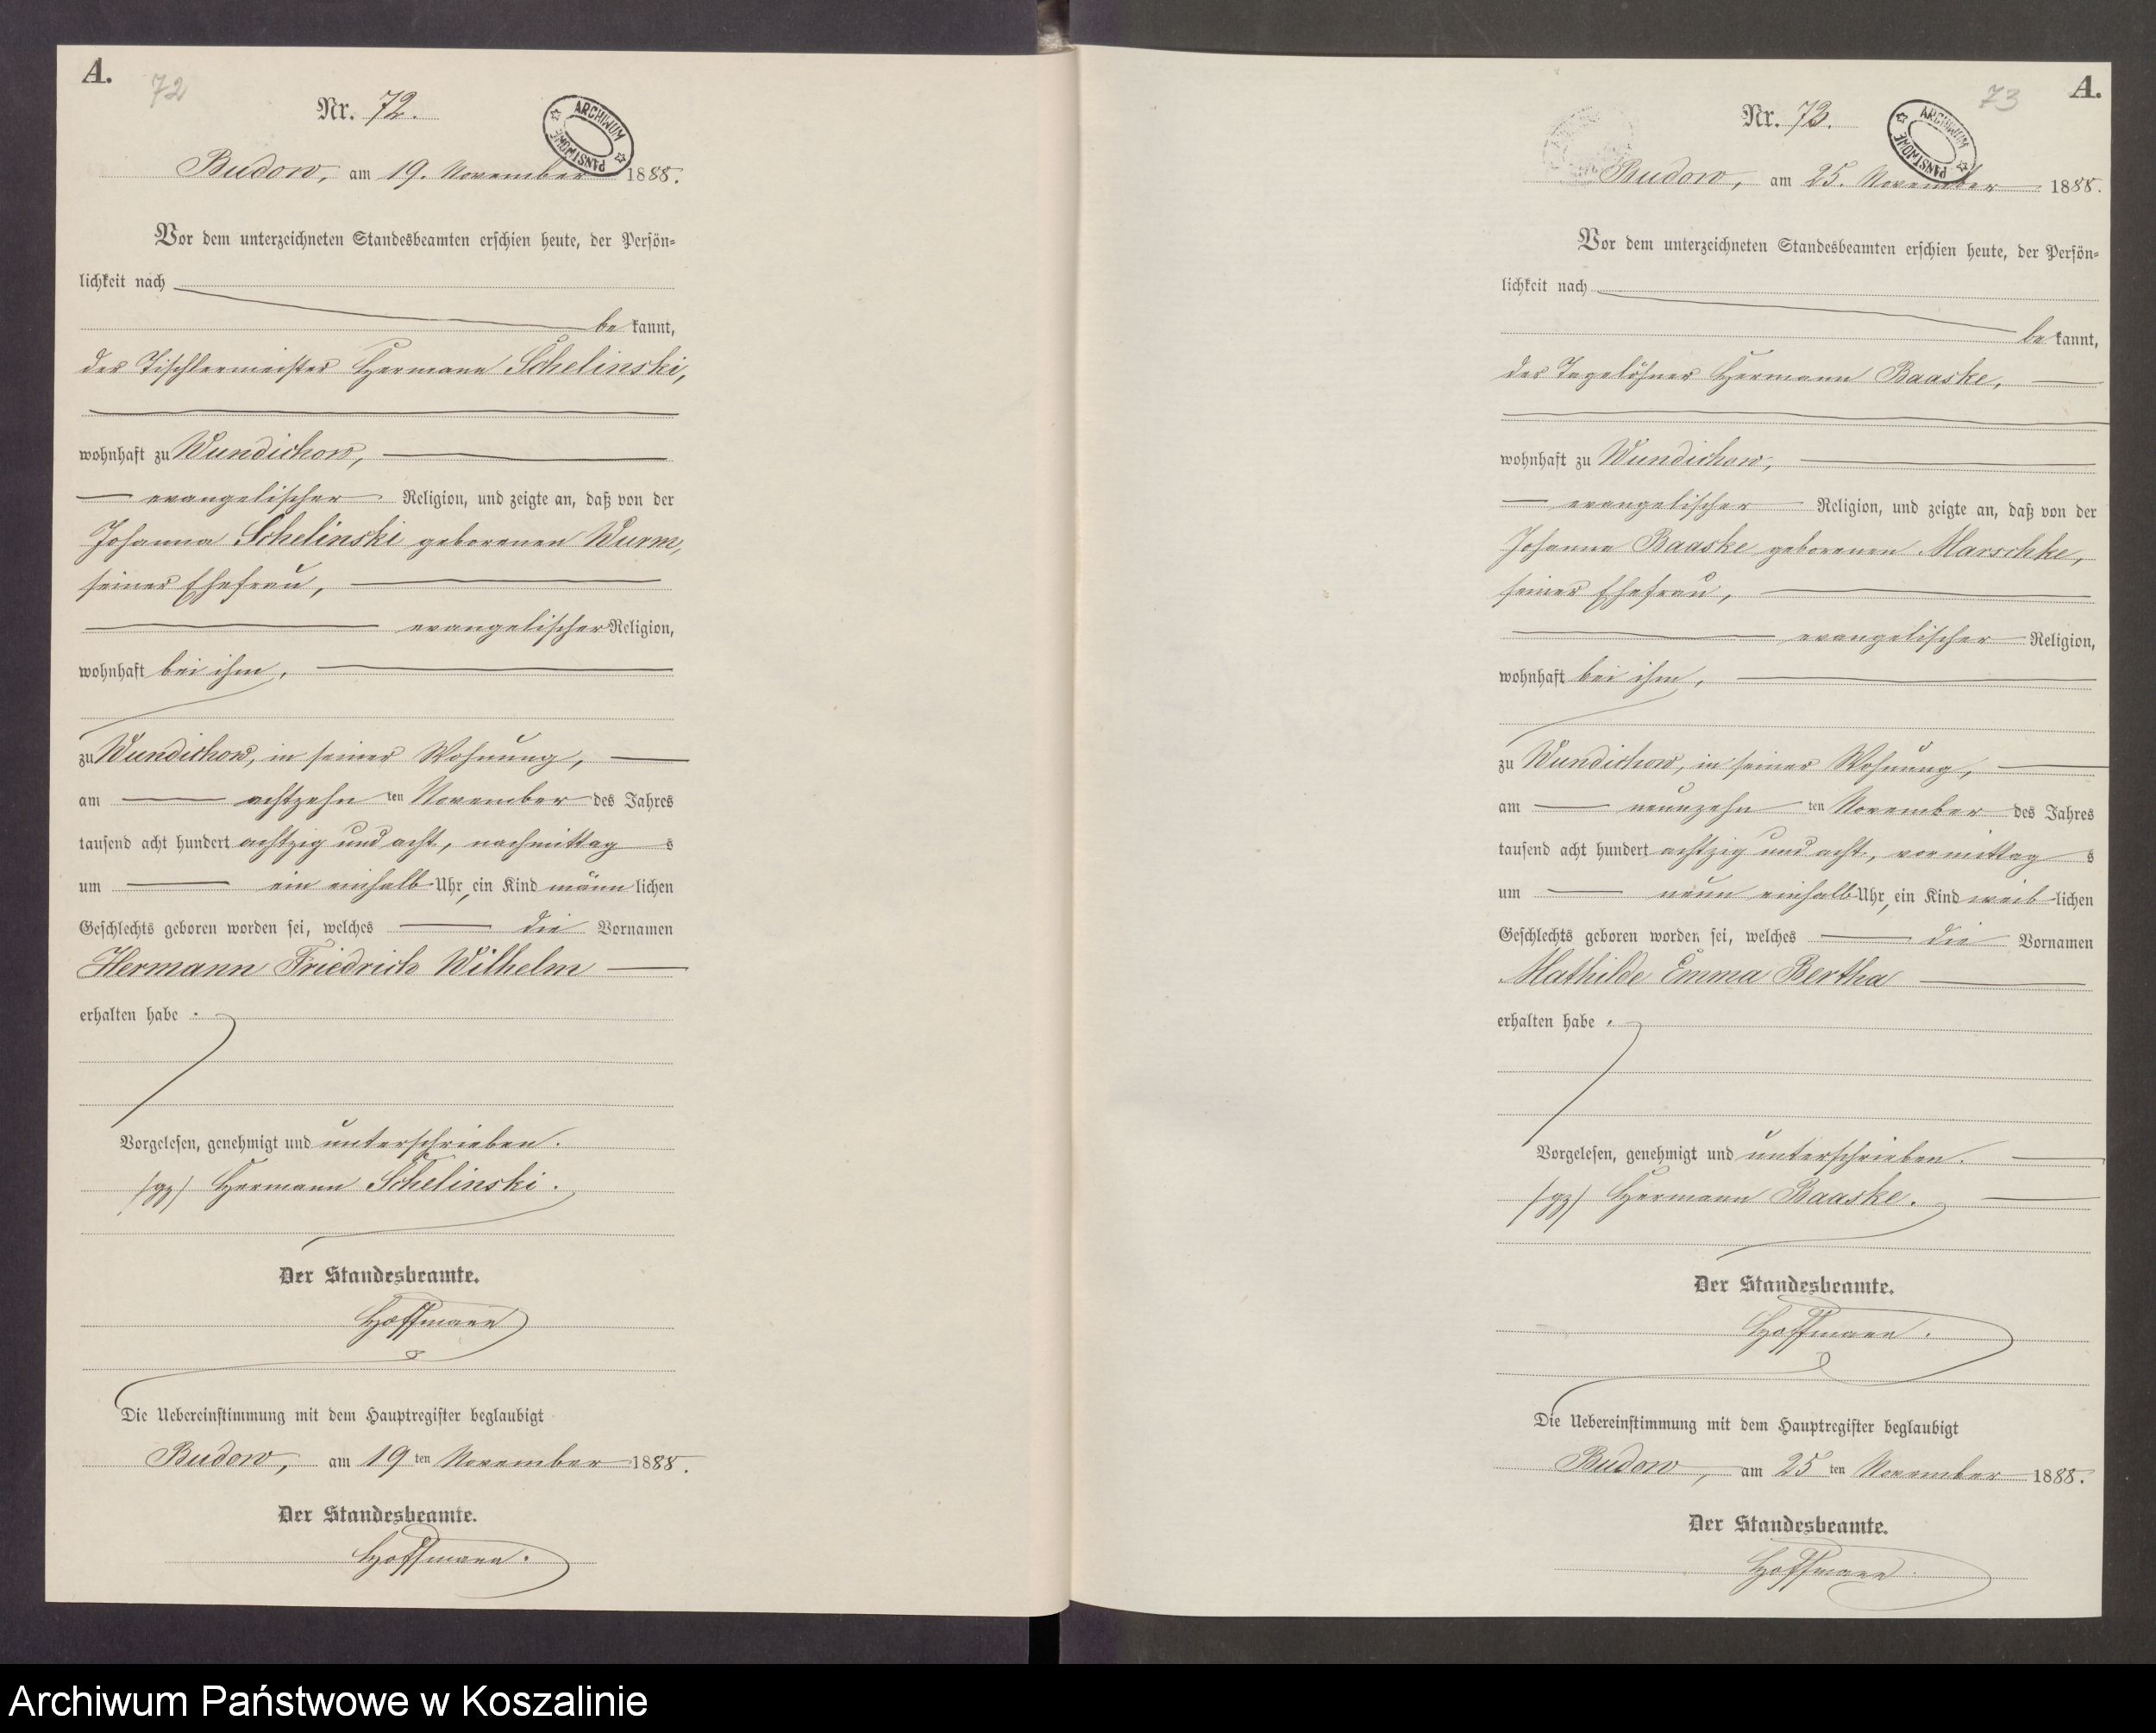 A.
72
Nr. 72.
ARCHIWUM PAŃSTWOWE
Budow, am 19. November 1888.
Vor dem unterzeichneten Standesbeamten erschien heute, der Persön-
lichkeit nach
be kannt,
der Tischlermeister Hermann Schelinski,
wohnhaft zu Wundichow,
evangelischer Religion, und zeigte an, daß von der
Johanna Schelinski geborenen Wurm,
seiner Ehefrau,
evangelischer Religion,
wohnhaft bei ihm,
zu Wundichow, in seiner Wohnung,
am achtzehn ten November des Jahres
tausend acht hundert achtzig und acht, nachmittag s
um ein einhalb Uhr, ein Kind männ lichen
Geschlechts geboren worden sei, welches die Vornamen
Hermann Friedrich Wilhelm
erhalten habe.
Vorgelesen, genehmigt und unterschrieben.
/gz/ Hermann Schelinski.
Der Standesbeamte.
Hoffmann
Die Uebereinstimmung mit dem Hauptregister beglaubigt
Budow, am 19 ten November 1888.
Der Standesbeamte.
Hoffmann.
A.
73
Nr. 73.
ARCHIWUM PAŃSTWOWE
Budow, am 25. November 1888.
Vor dem unterzeichneten Standesbeamten erschien heute, der Persön-
lichkeit nach
be kannt,
der Tagelöhner Hermann Baaske,
wohnhaft zu Wundichow,
evangelischer Religion, und zeigte an, daß von der
Johanna Baaske geborenen Marschke,
seiner Ehefrau,
evangelischer Religion,
wohnhaft bei ihm,
zu Wundichow, in seiner Wohnung,
am neunzehn ten November des Jahres
tausend acht hundert achtzig und acht, vormittag s
um neun einhalb Uhr, ein Kind weib lichen
Geschlechts geboren worden sei, welches die Vornamen
Mathilde Emma Bertha
erhalten habe.
Vorgelesen, genehmigt und unterschrieben.
/gz/ Hermann Baaske.
Der Standesbeamte.
Hoffmann.
Die Uebereinstimmung mit dem Hauptregister beglaubigt
Budow, am 25 ten November 1888.
Der Standesbeamte.
Hoffmann.
Archiwum Państwowe w Koszalinie